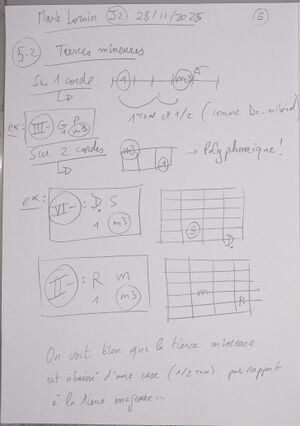 Marie Lorain J2 28/11/2025 5
5-2 Tierces mineures
Sur 1 corde 1 m3
1 TON et 1/2 (comme
ex: III- G P
1 m3
Sur 2 cordes m3 1 → Polyphonique!
ex: VI- : D. S
1 m3
S
D.
II- : R m
1 m3
m
R
On voit bien que la tierce mineure
est abaissé d'une case (1/2 TON) par rapport
à la tierce majeure...